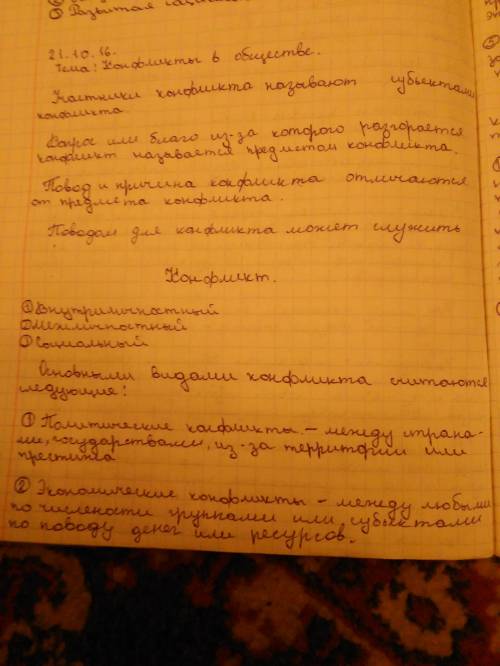 ② Развитая
21.10.16.
Тема: Конфликты в обществе.
Участники конфликта называют субъектами
конфликта
Вопрос или благо из-за которого разгорается
конфликт называется предметом конфликта.
Повод и причина конфликта отличаются
от предмета конфликта.
Поводом для конфликта может служить
Конфликт.
① Внутриличностный
② межличностный
③ Социальный
Основными видами конфликта считаются
следующие:
① Политические конфликты – между страна-
ми, государствами, из-за территории или
престижа
② Экономические конфликты – между любыми
по числености группами или субъектами
по поводу денег или ресурсов.